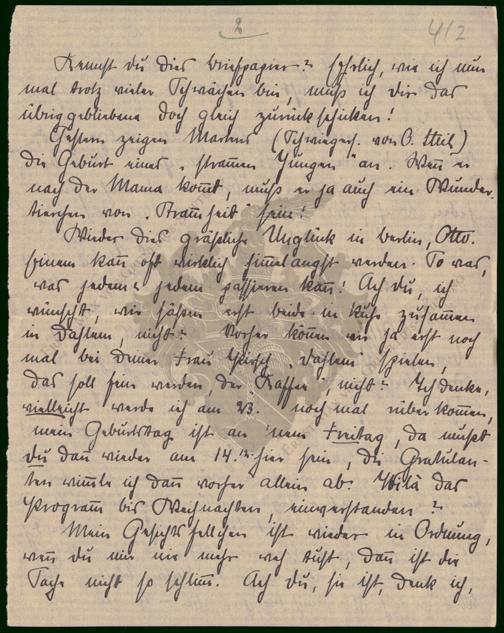 2
4/2
Kennst du dies Briefpapier? Ehrlich, wie ich nun
mal trotz vieler Schwächen bin, muß ich dir das
übriggebliebene doch gleich zurückschicken!
Gestern zeigen Marine (Schwiegers. von O. )
die Geburt eines „strammen Jungen" an. Wenn er
nach der Mama kommt, muß er ja auch ein Wunder-
tierchen von „Strammheit" sein!
Wieder dies gräßliche Unglück in Berlin, Otto.
Einem kann oft wirklich himmelangst werden. So was,
was jedem jedem passieren kann! Ach du, ich
wünscht, wir säßen erst beide in Küche zusammen
in Dahlem, nicht? Vorher können wir ja erst noch
mal bei deiner Frau Hirsch „Dahlem" spielen,
das soll fein werden, der Kaffee, nicht? Ich denke,
vielleicht werde ich am 23. noch mal rüber kommen,
mein Geburtstag ist an 'nem Freitag, da mußt
du dann wieder am 14.ten hier sein, die Gratulan-
ten wimmle ich dann vorher allein ab. Voilà das
Programm bis Weihnachten, einverstanden?
Mein Gesichtsfellchen ist wieder in Ordnung,
wenn du mir nie mehr weh tust, dann ist die
Sache nicht so schlimm. Ach du, sie ist, denk ich,